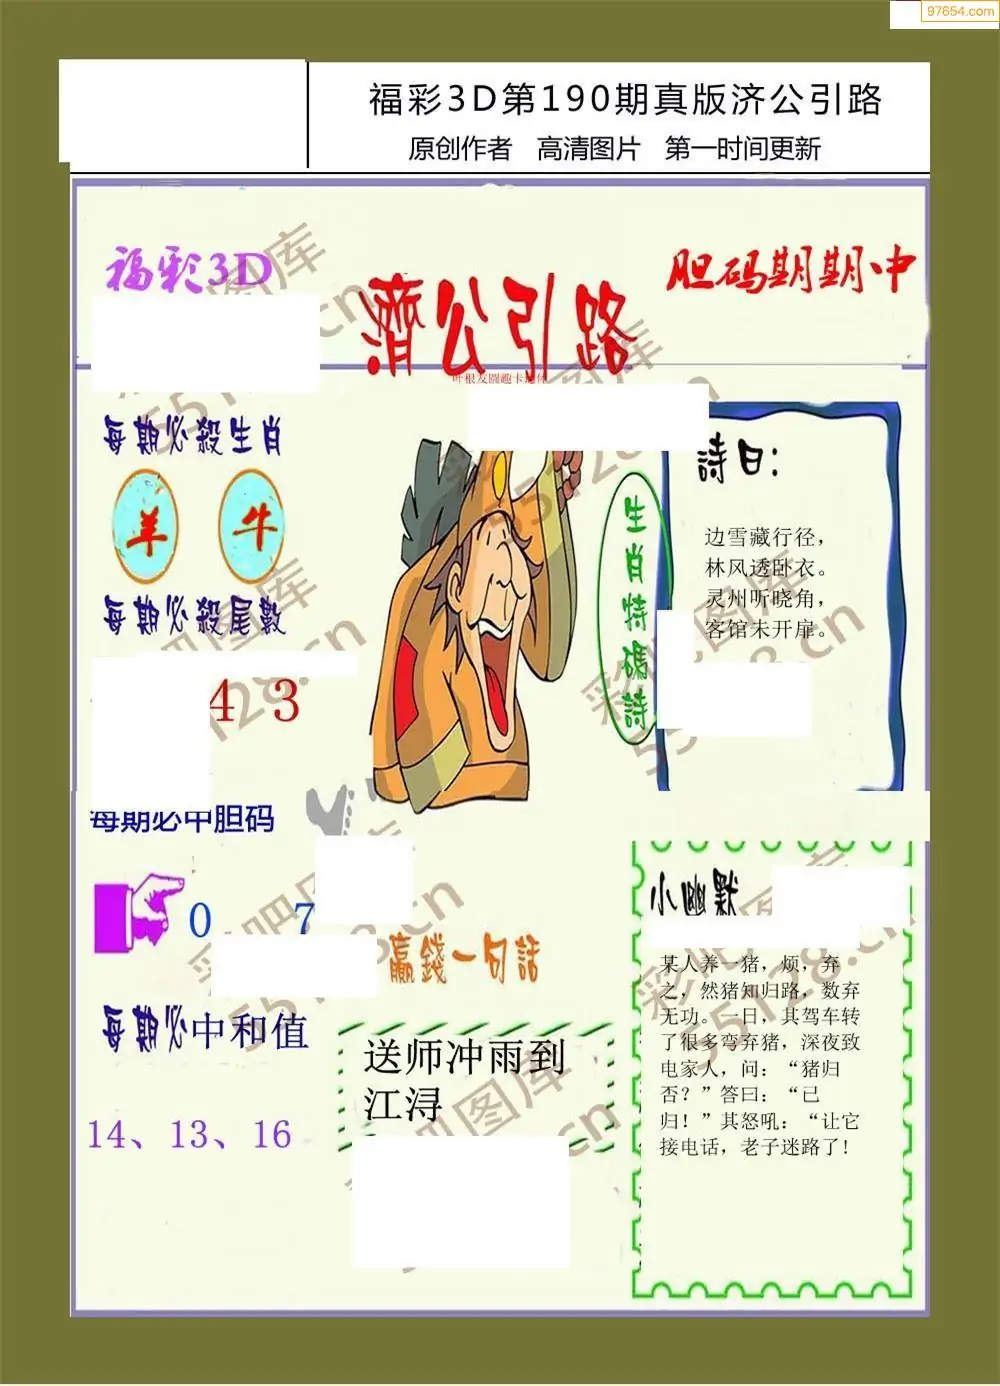 97654.com
福彩3D第190期真版济公引路
原创作者 高清图片 第一时间更新
福彩3D
濟公引路
胆码期期中
叶根友圆趣卡通体
每期必殺生肖
羊 牛
每期必殺尾數
4 3
每期必中胆码
0 7
每期必中和值
14、13、16
生肖特碼詩
詩曰:
边雪藏行径，
林风透卧衣。
灵州听晓角，
客馆未开扉。
贏錢一句話
送师冲雨到
江浔
小幽默
某人养一猪，烦，弃
之，然猪知归路，数弃
无功。一日，其驾车转
了很多弯弃猪，深夜致
电家人，问：“猪归
否？”答曰：“已
归！”其怒吼：“让它
接电话，老子迷路了!
彩吧图库
55128.cn